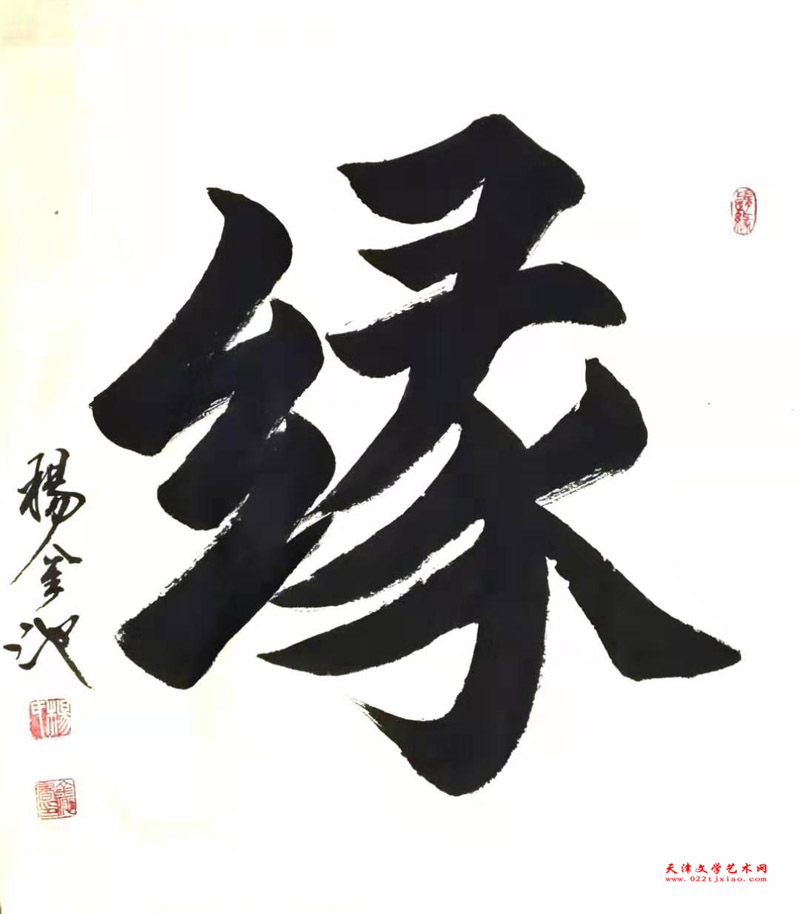 缘
楊金池
天津文学艺术网
www.022tjxiao.com